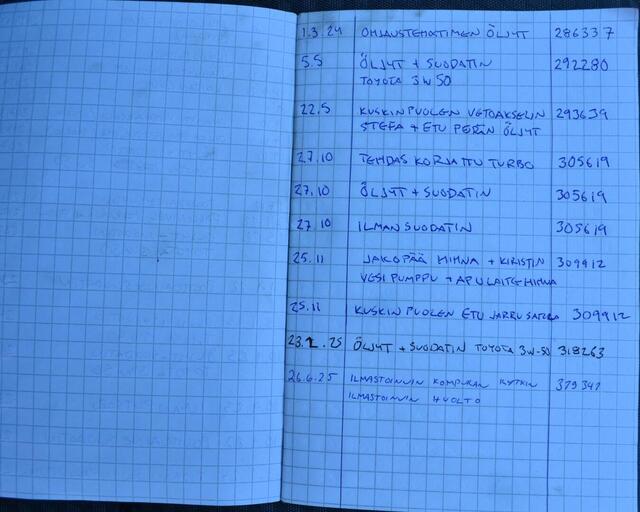 1.3.24 OHJAUSTEHOSTIMEN ÖLJYT 286337
5.5 ÖLJYT + SUODATIN 292280
TOYOTA 5W50
22.5 KUSKINPUOLEN VETOAKSELIN 293639
STEFA + ETU PERÄN ÖLJYT
27.10 TEHDAS KORJATTU TURBO 305619
27.10 ÖLJYT + SUODATIN 305619
27 10 ILMANSUODATIN 305619
25.11 JAKOPÄÄ HIHNA + KIRISTIN 309912
VESIPUMPPU + APULAITEHIHNA
25.11 KUSKIN PUOLEN ETU JARRUSATULA 309912
23.2.25 ÖLJYT + SUODATIN TOYOTA 5W-50 318263
26.6.25 ILMASTOINNIN KOMPURAN KYTKIN
ILMASTOINNIN HUOLTO